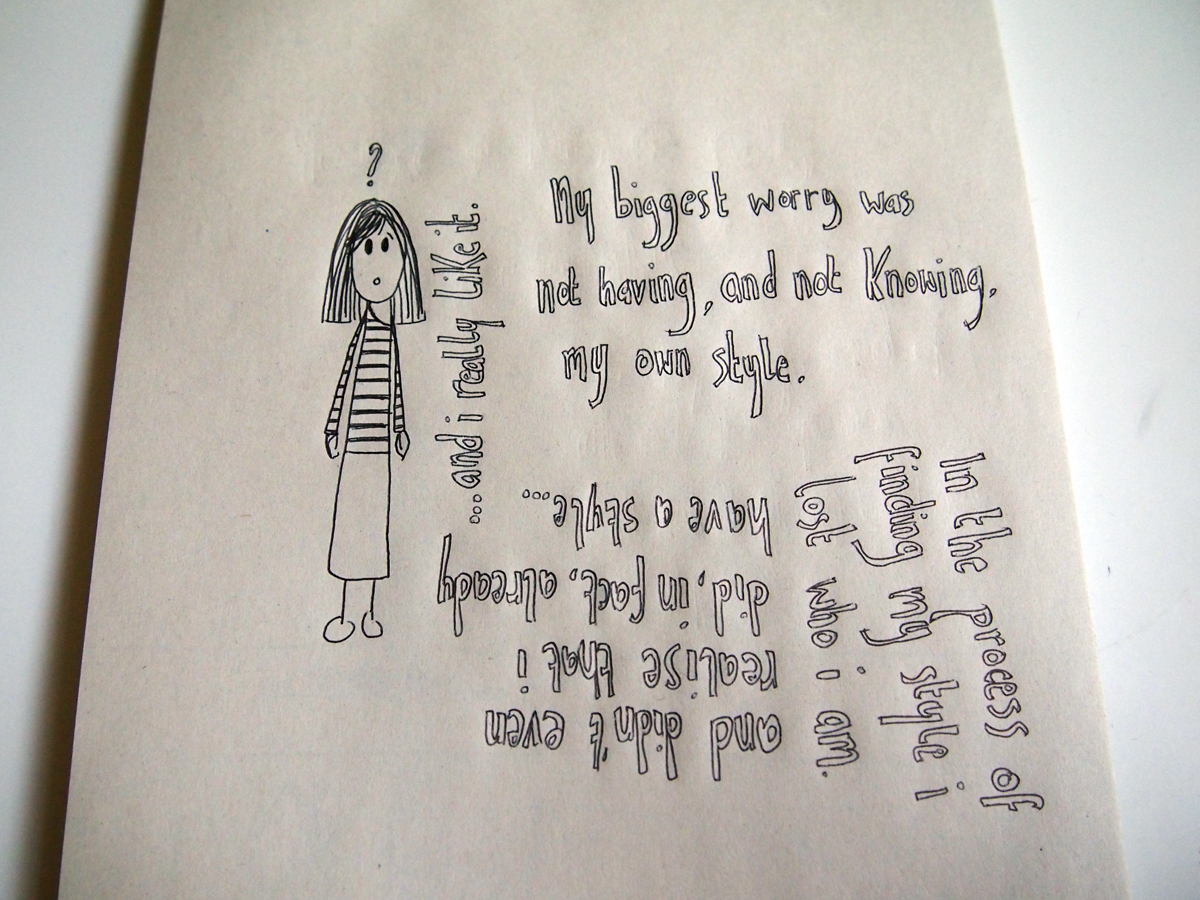 ?
My biggest worry was
not having, and not Knowing,
my own style.
In the process of
finding my style i
lost who i am.
and didn't even
realise that i
did, in fact, already
have a style...
...and i really like it.